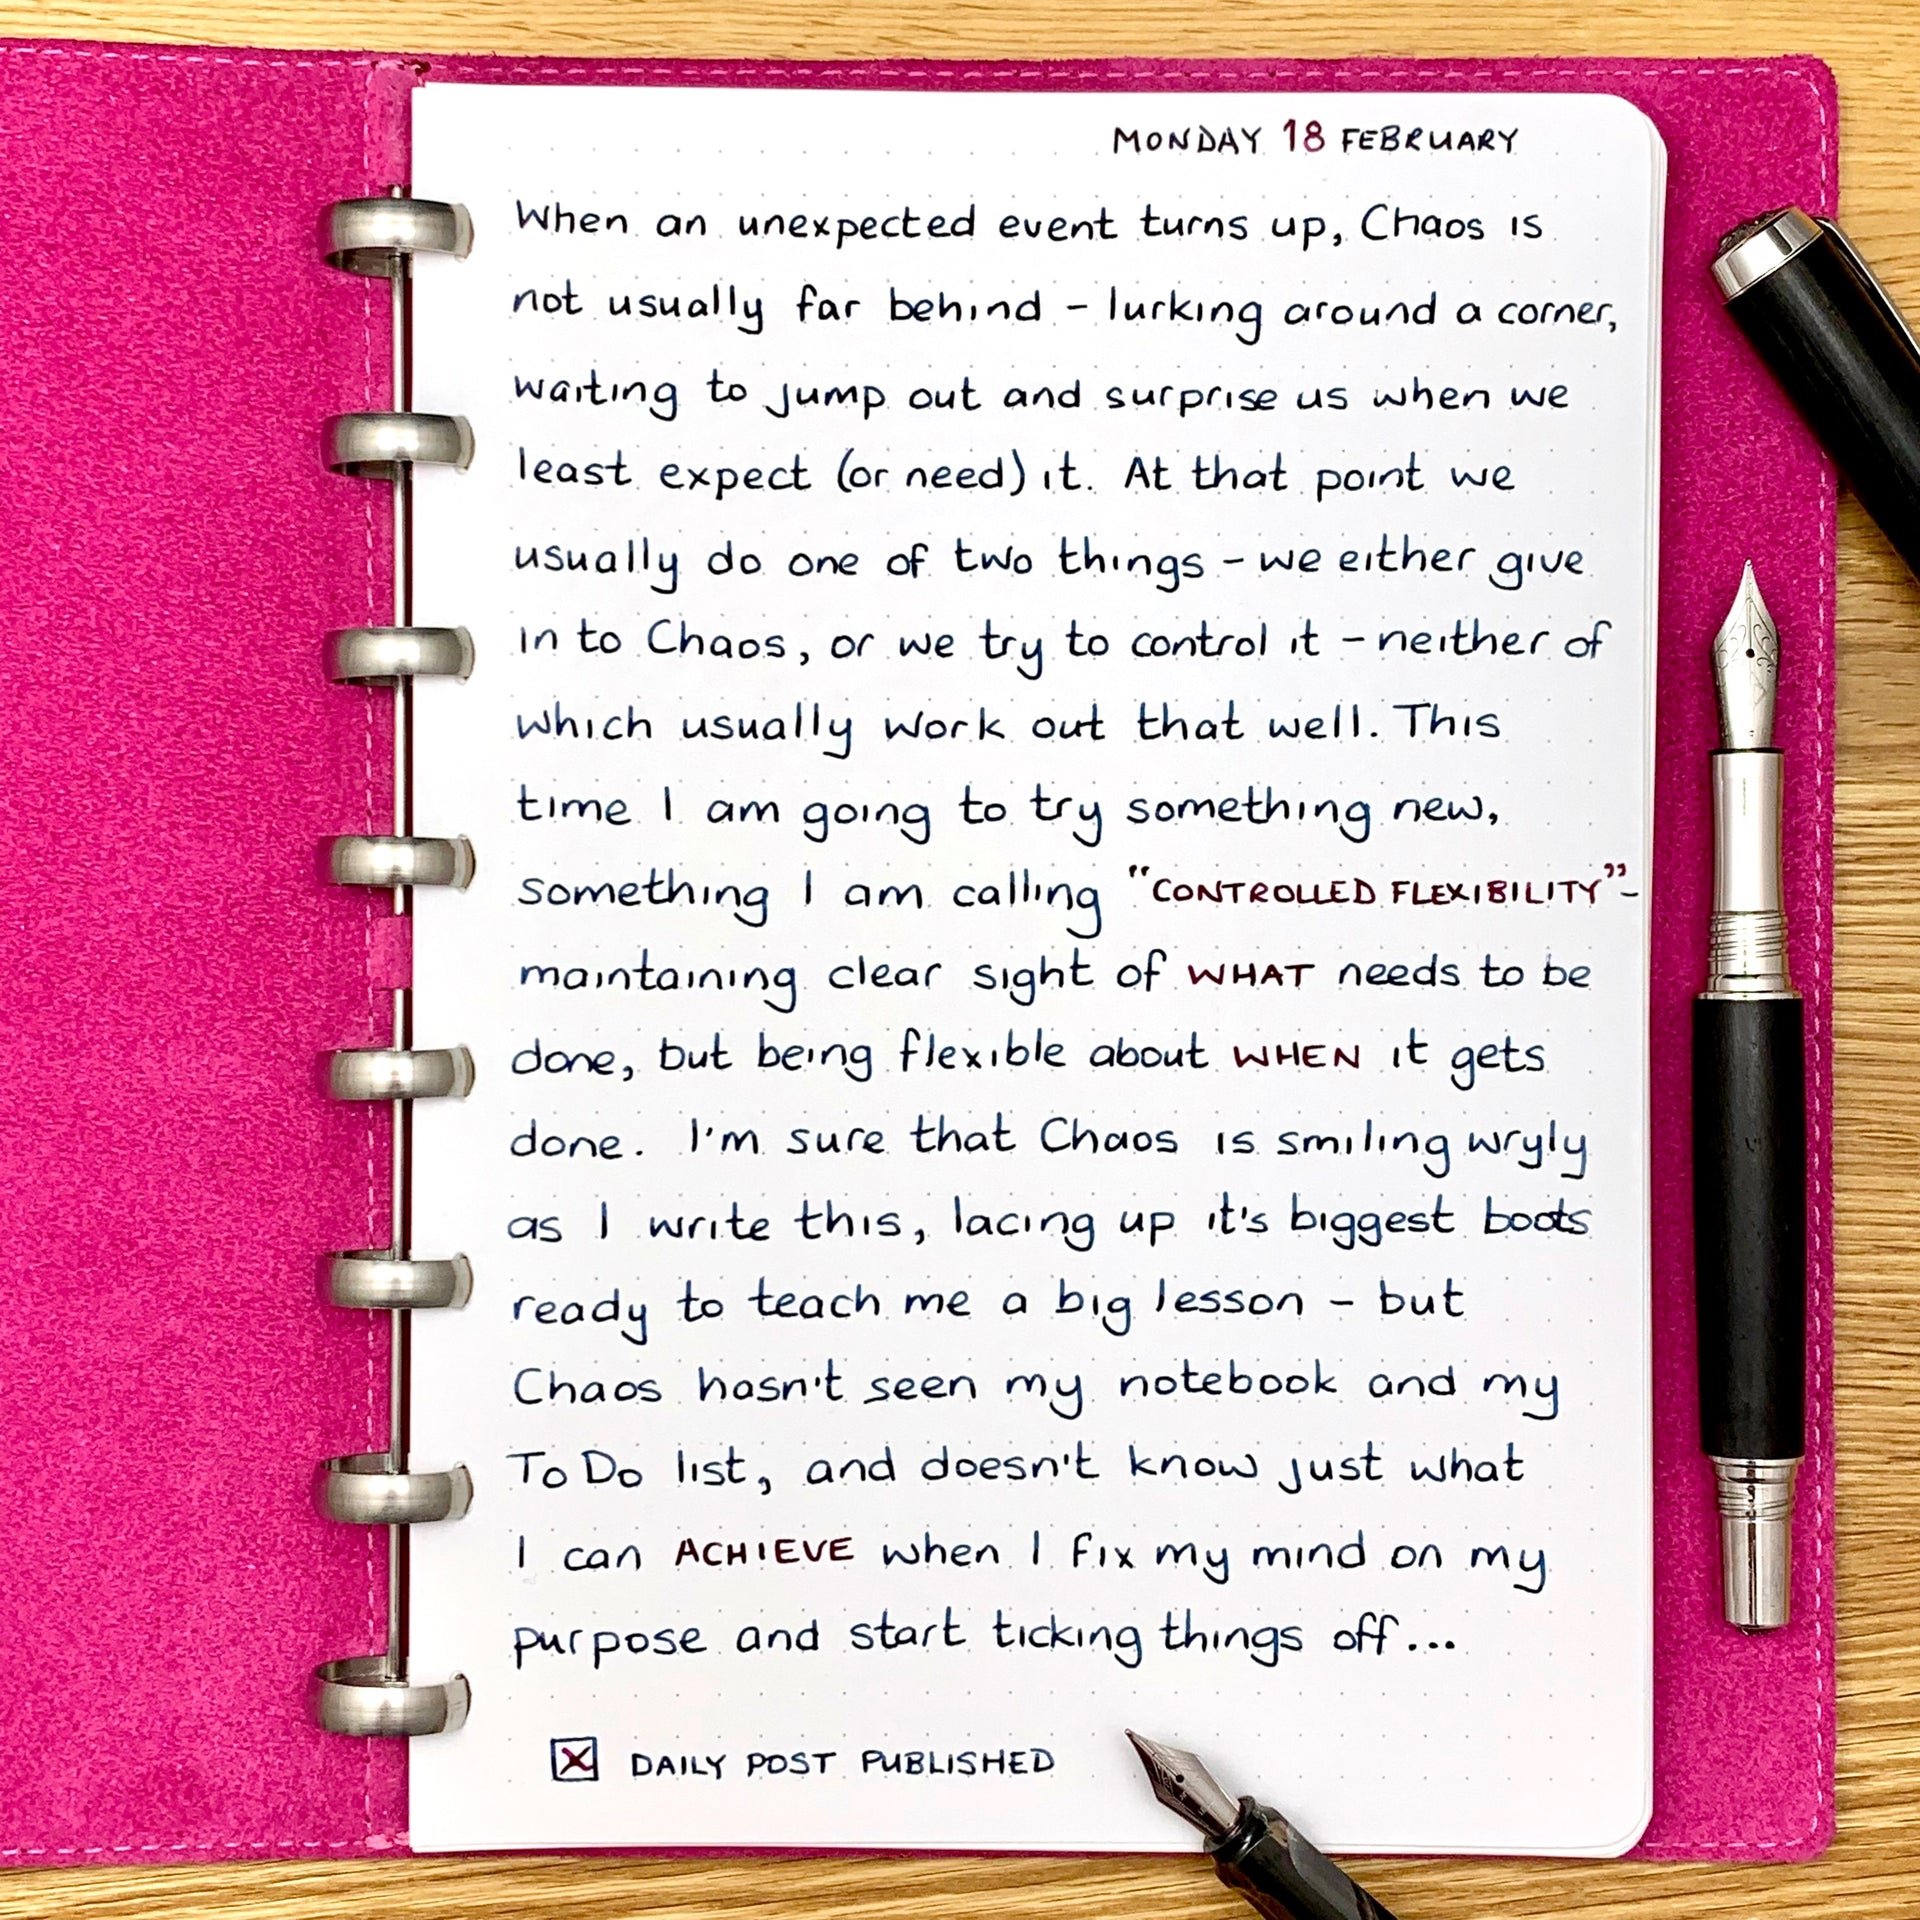 MONDAY 18 FEBRUARY
When an unexpected event turns up, Chaos is
not usually far behind – lurking around a corner,
waiting to jump out and surprise us when we
least expect (or need) it. At that point we
usually do one of two things – we either give
in to Chaos, or we try to control it – neither of
which usually work out that well. This
time I am going to try something new,
something I am calling "CONTROLLED FLEXIBILITY" –
maintaining clear sight of WHAT needs to be
done, but being flexible about WHEN it gets
done. I'm sure that Chaos is smiling wryly
as I write this, lacing up it's biggest boots
ready to teach me a big lesson – but
Chaos hasn't seen my notebook and my
To Do list, and doesn't know just what
I can ACHIEVE when I fix my mind on my
purpose and start ticking things off...
☒ DAILY POST PUBLISHED